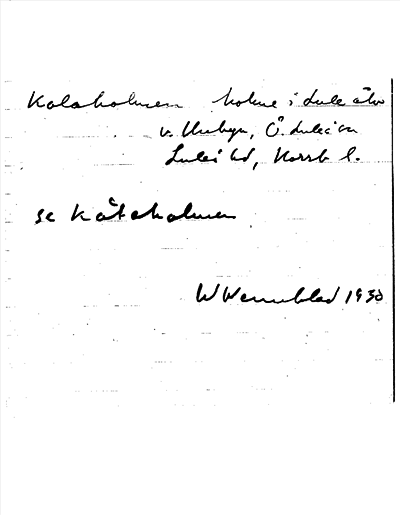 Kolaholmen holme i Lule älv
v. Unbyn, Ö. Luleå sn
Luleå td, Norrb l.
se Kåtaholmen
W Wennblad 1930